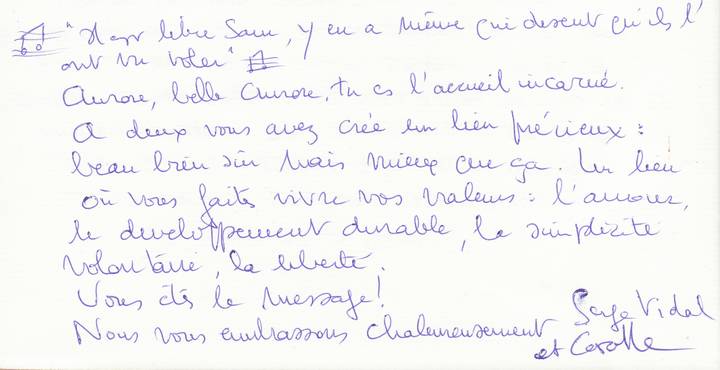 "Il est libre Sam, y en a même qui disent qu'ils l'
ont vu voler"
Aurore, belle Aurore, tu es l'accueil incarné.
A deux vous avez créé un lieu précieux :
beau bien sûr mais mieux que ça. Un lieu
où vous faites vivre vos valeurs : l'amour,
le developpement durable, la simplicité
volontaire, la liberté.
Vous êtes le message !
Nous vous embrassons chaleureusement Serge Vidal
et